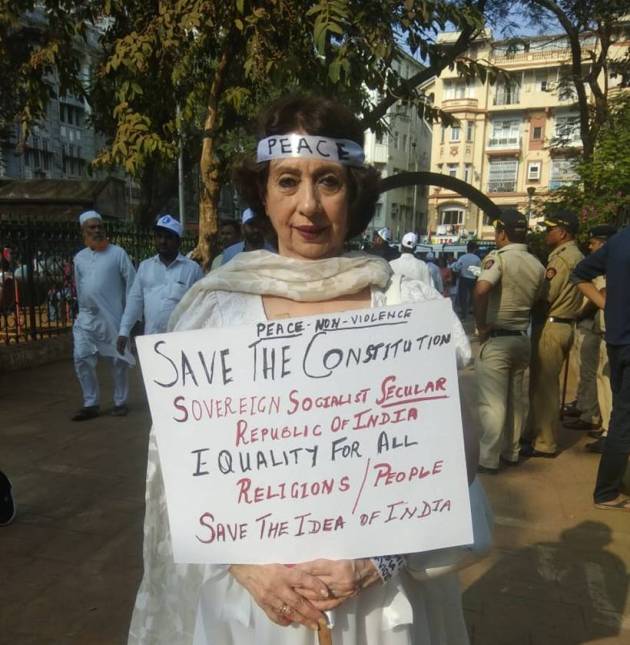 PEACE
PEACE-NON-VIOLENCE
SAVE THE CONSTITUTION
SOVEREIGN SOCIALIST SECULAR
REPUBLIC OF INDIA
EQUALITY FOR ALL
RELIGIONS / PEOPLE
SAVE THE IDEA OF INDIA